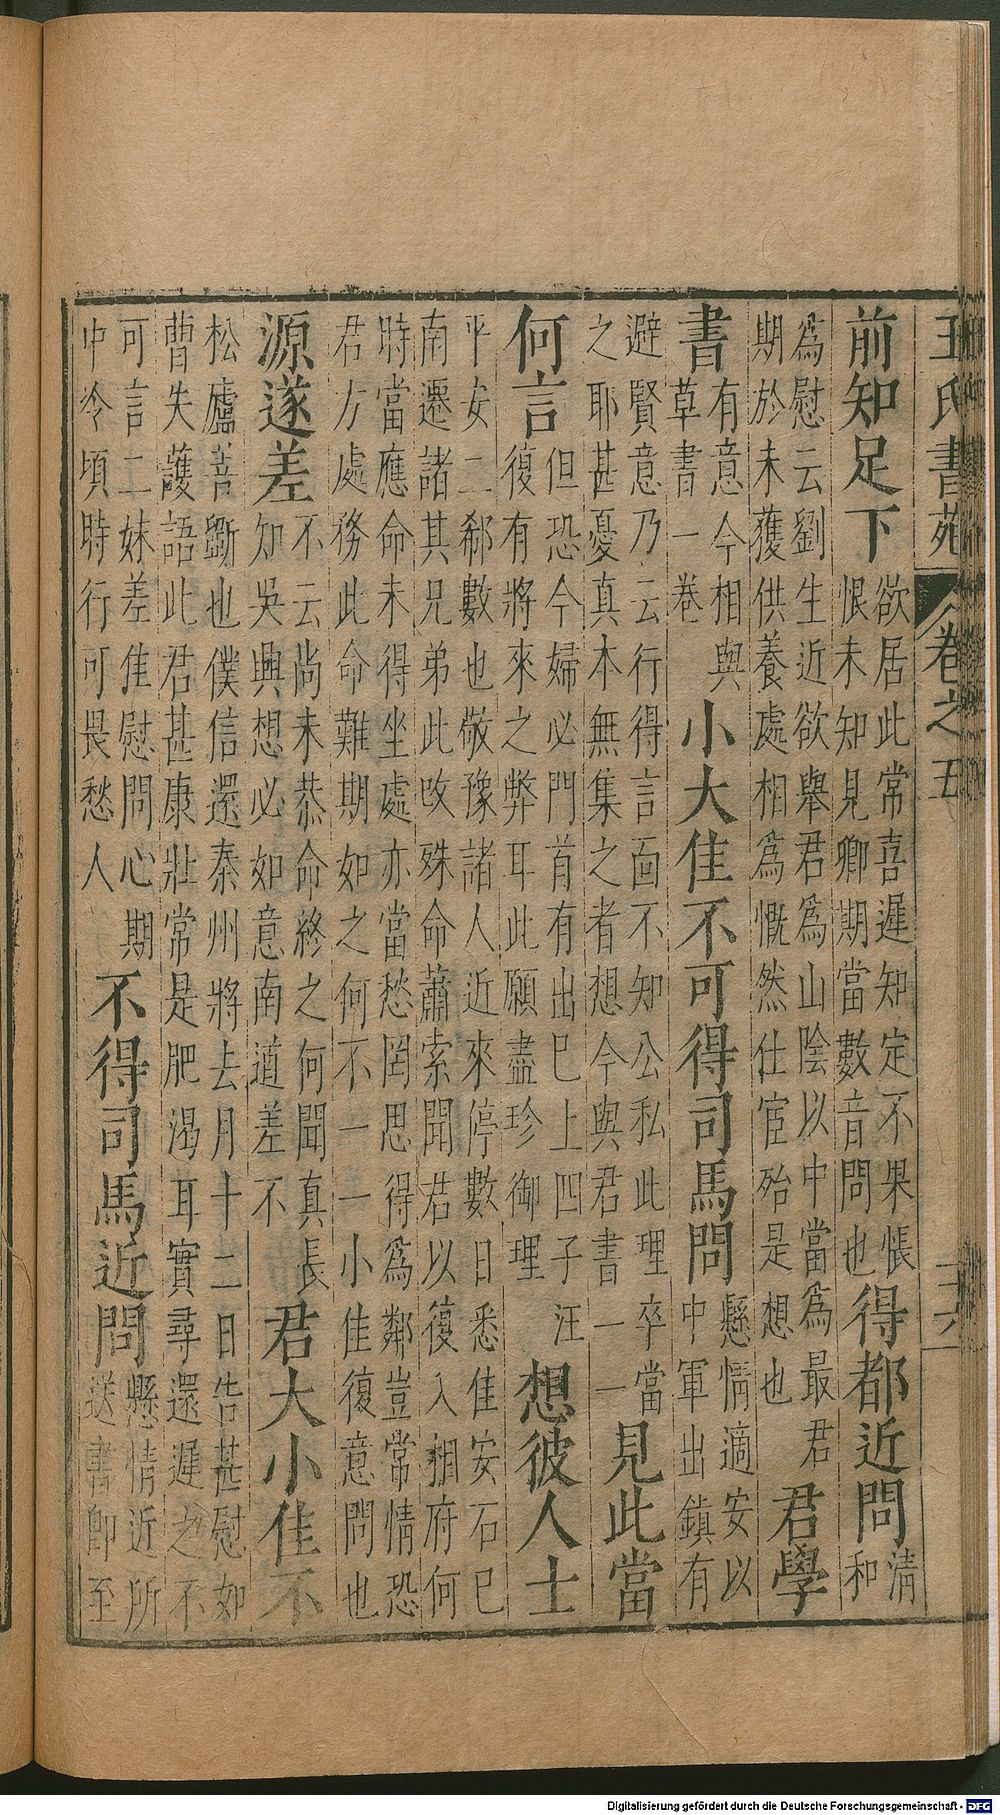 王氏書苑 卷之五
前知足下
欲居此常喜遲知定不果悵
恨未知見卿期當數音問也
得都近問
清
和
為慰云劉生近欲舉君為山陰以中當為最君
期於未獲供養處相為慨然仕宦殆是想也
君學
書
有意今相與
草書一卷
小大佳不可得司馬問
懸情適安以
中軍出鎮有
避賢意乃云行得言面不知公私此理卒當
之耶甚憂真本無集之者想今與君書一一
見此當
何言
但恐今婦必門首有出巳上四子汪
復有將來之弊耳此願盡珍御理
想彼人士
平安二郗數也敬豫諸人近來停數日悉佳安石巳
南遷諸其兄弟此改殊命蕭索聞君以復入相府何
時當應命未得坐處亦當愁罔思得為鄰豈常情恐
君方處務此命難期如之何不一一小佳復意問也
源遂差
不云尚未恭命終之何聞真長
知吳興想必如意南道差不
君大小佳不
松廬善斷也僕信還秦州將去月十二日告甚慰如
曹失護語此君甚康壯常是肥渴耳實尋還遲之不
可言二妹差佳慰問心期
中冷頃時行可畏愁人
不得司馬近問
懸情近所
送書即至
Digitalisierung gefördert durch die Deutsche Forschungsgemeinschaft - DFG